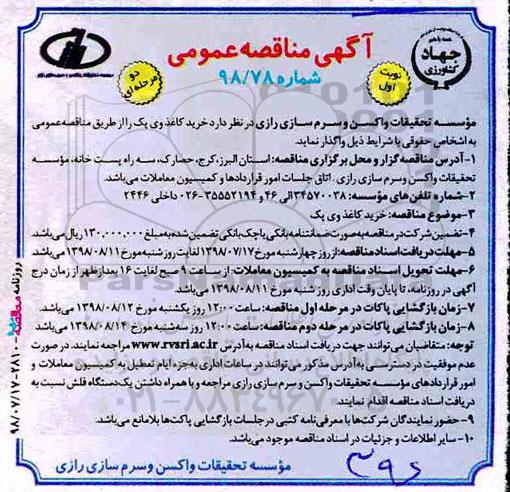 آگهی مناقصه عمومی
شماره ۹۸/۷۸
نوبت اول
دو مرحله‌ای
جهاد کشاورزی
مؤسسه تحقیقات واکسن و سرم سازی رازی در نظر دارد خرید کاغذ وی پک را از طریق مناقصه عمومی
به اشخاص حقوقی با شرایط ذیل واگذار نماید.
۱-آدرس مناقصه گزار و محل برگزاری مناقصه: استان البرز، کرج، حصارک، سه راه پست خانه، مؤسسه
تحقیقات واکسن وسرم سازی رازی. اتاق جلسات امور قراردادها و کمیسیون معاملات می‌باشد.
۲-شماره تلفن‌های مؤسسه: ۳۴۵۷۰۰۳۸ الی ۴۶ و ۳۵۵۵۲۱۹۴-۰۲۶ داخلی ۲۴۴۶
۳-موضوع مناقصه: خرید کاغذ وی پک
۴-تضمین شرکت در مناقصه به صورت ضمانتنامه بانکی یا چک بانکی تضمین شده به مبلغ ۱۳۰,۰۰۰,۰۰۰ ریال می‌باشد.
۵-مهلت دریافت اسناد مناقصه: از روز چهارشنبه مورخ ۱۳۹۸/۰۷/۱۷ لغایت روز شنبه مورخ ۱۳۹۸/۰۸/۱۱ می‌باشد.
۶-مهلت تحویل اسناد مناقصه به کمیسیون معاملات: از ساعت ۹ صبح لغایت ۱۶ بعدازظهر از زمان درج
آگهی در روزنامه، تا پایان وقت اداری روز شنبه مورخ ۱۳۹۸/۰۸/۱۱ می‌باشد.
۷-زمان بازگشایی پاکات در مرحله اول مناقصه: ساعت ۱۲:۰۰ روز یکشنبه مورخ ۱۳۹۸/۰۸/۱۲ می‌باشد.
۸-زمان بازگشایی پاکات در مرحله دوم مناقصه: ساعت ۱۲:۰۰ روز سه‌شنبه مورخ ۱۳۹۸/۰۸/۱۴ می‌باشد.
توجه: متقاضیان می‌توانند جهت دریافت اسناد مناقصه به آدرس www.rvsri.ac.ir مراجعه نمایند. در صورت
عدم موفقیت در دسترسی به آدرس مذکور می‌توانند در ساعات اداری به‌جزء ایام تعطیل به کمیسیون معاملات و
امور قراردادهای مؤسسه تحقیقات واکسن و سرم سازی رازی مراجعه و با همراه داشتن یک دستگاه فلش نسبت به
دریافت اسناد مناقصه اقدام نمایند.
۹-حضور نمایندگان شرکت‌ها با معرفی‌نامه کتبی در جلسات بازگشایی پاکت‌ها بلامانع می‌باشد.
۱۰-سایر اطلاعات و جزئیات در اسناد مناقصه موجود می‌باشد.
مؤسسه تحقیقات واکسن وسرم سازی رازی
روزنامه مناقصه ۲۸۱۰-۹۸/۰۷/۱۷
۰۲۱-۸۸۳۴۹۶۷۰